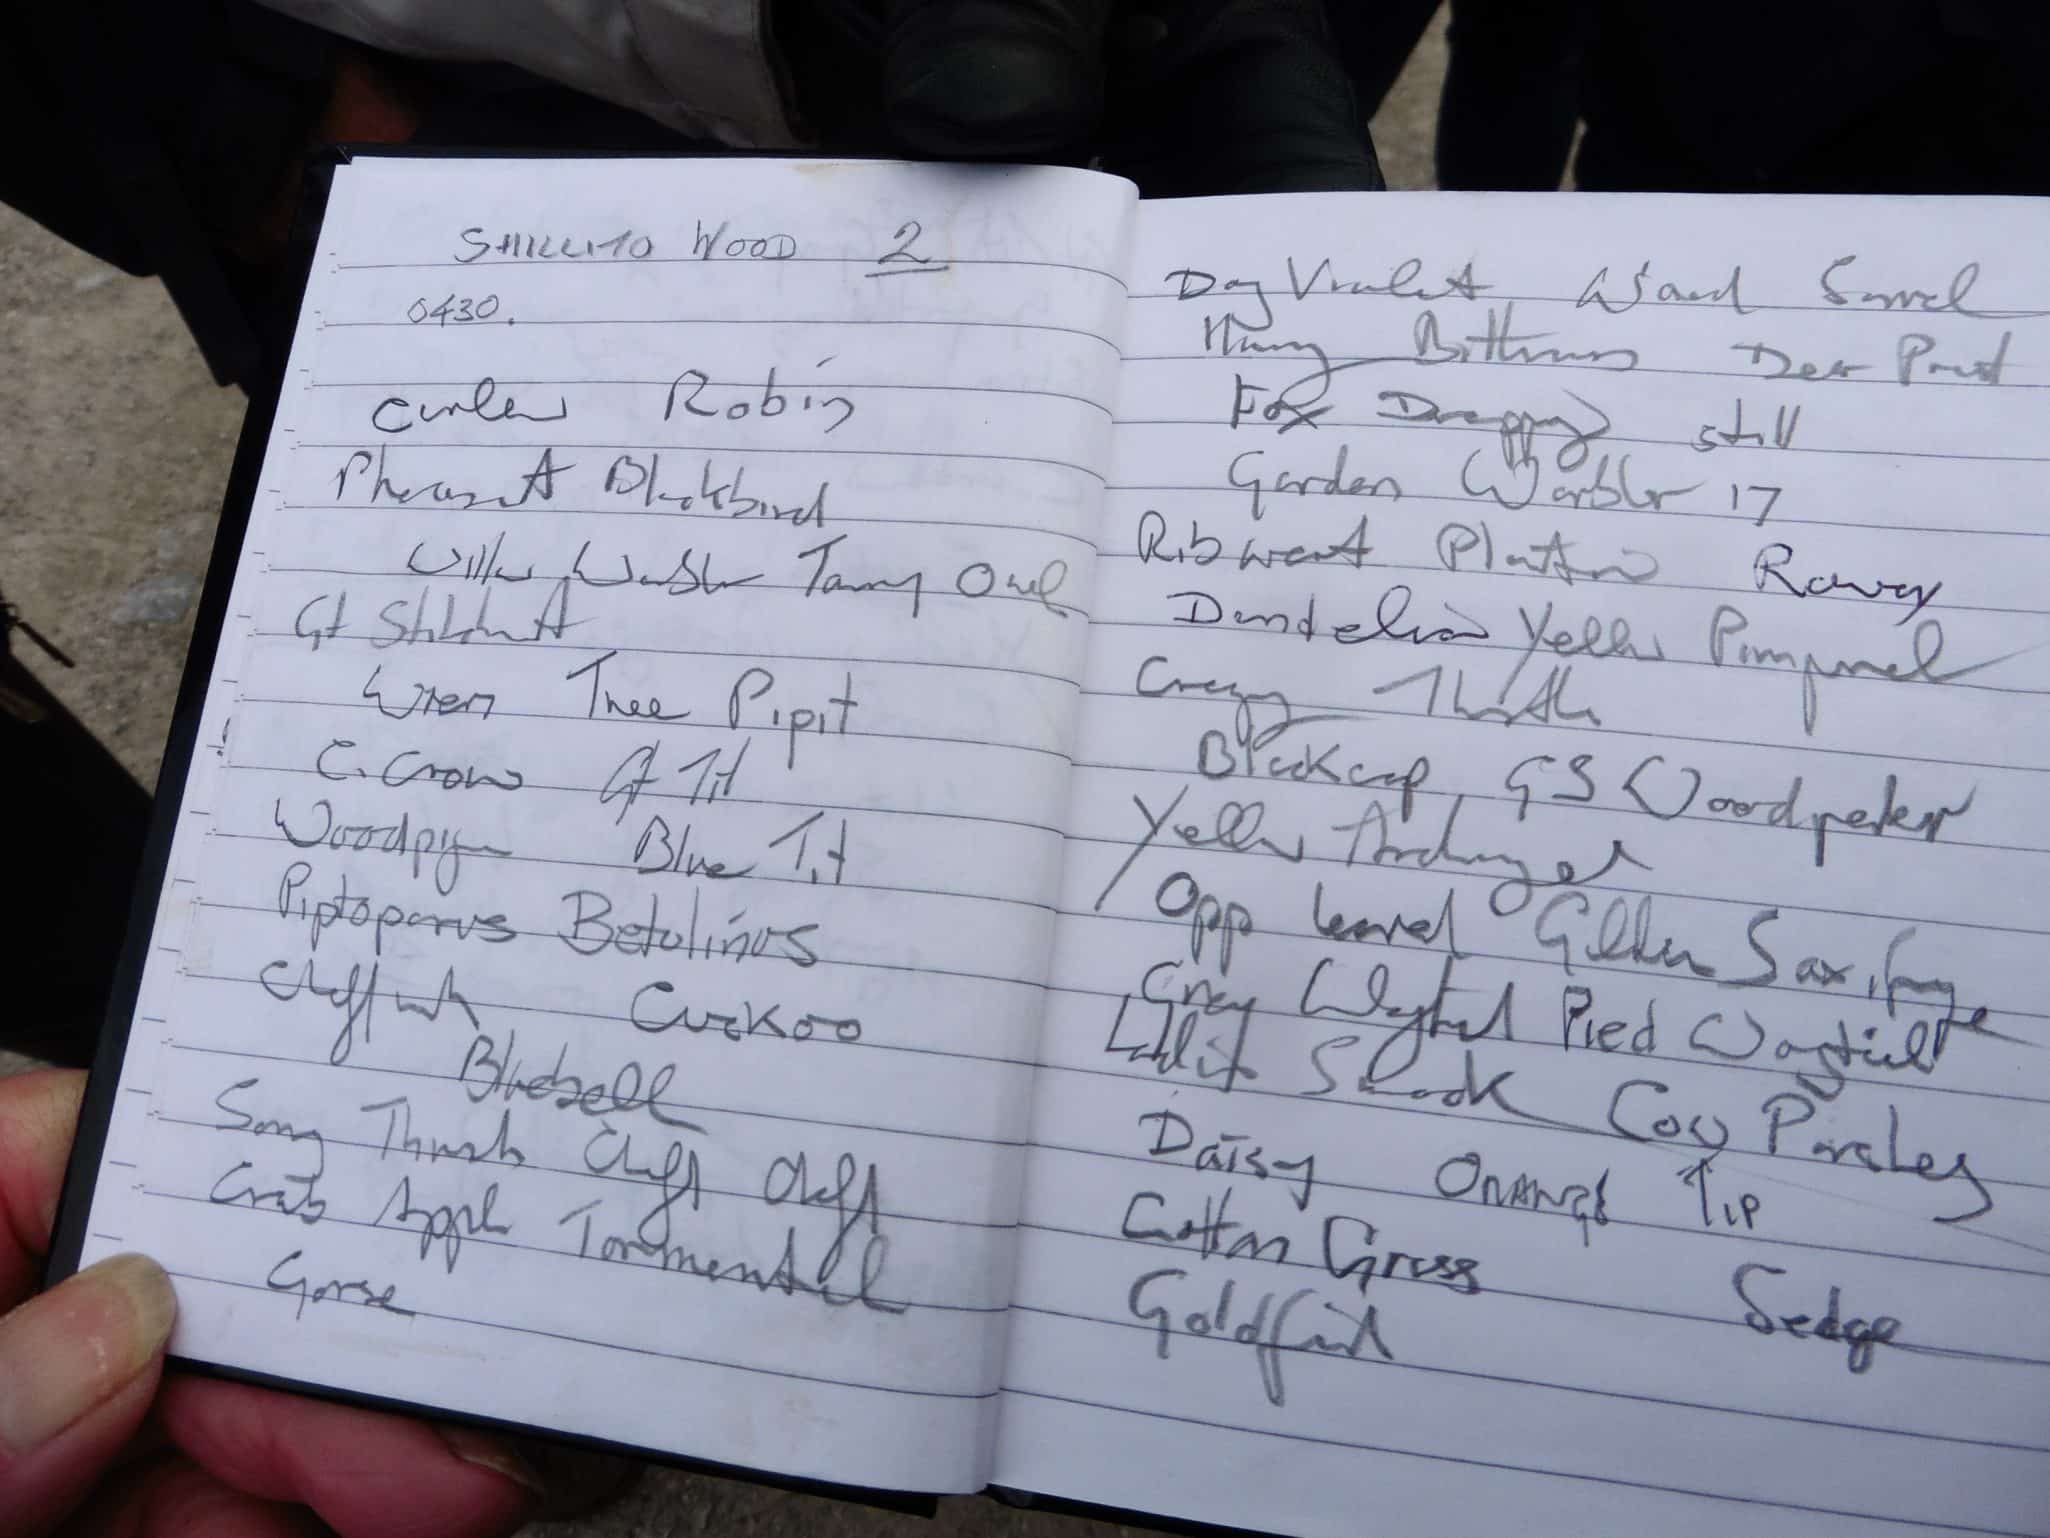 SHILLITO WOOD 2
0430.
Curlew Robin
Pheasant Blackbird
Willow Warbler Tawny Owl
Gt Stitchwort
Wren Tree Pipit
C. Crow Gt Tit
Woodpigeon Blue Tit
Piptoporus Betulinus
Chaffinch Cuckoo
Bluebell
Song Thrush Chaff Chaff
Crab Apple Tormentil
Gorse
Dog Violet Wood Sorrel
Hairy Bittercress Deer Print
Fox Dropping still
Garden Warbler 17
Ribwort Plantain Rowan
Dandelion Yellow Pimpernel
Creeping Thistle
Blackcap GS Woodpecker
Yellow Archangel
Opp leaved Golden Saxifrage
Grey Wagtail Pied Wagtail
Cow Parsley
Daisy ORANGE TIP
Cotton Grass Sedge
Goldfinch